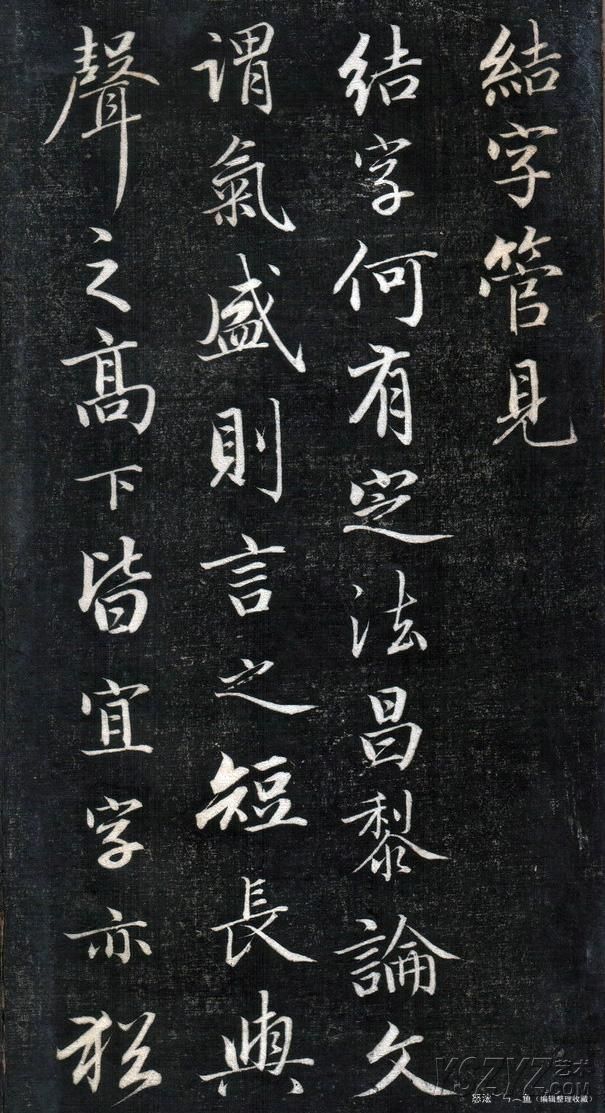 結字管見
結字何有定法昌黎論文
謂氣盛則言之短長與
聲之高下皆宜字亦猶
YSZYZ艺术
（编辑整理收藏）